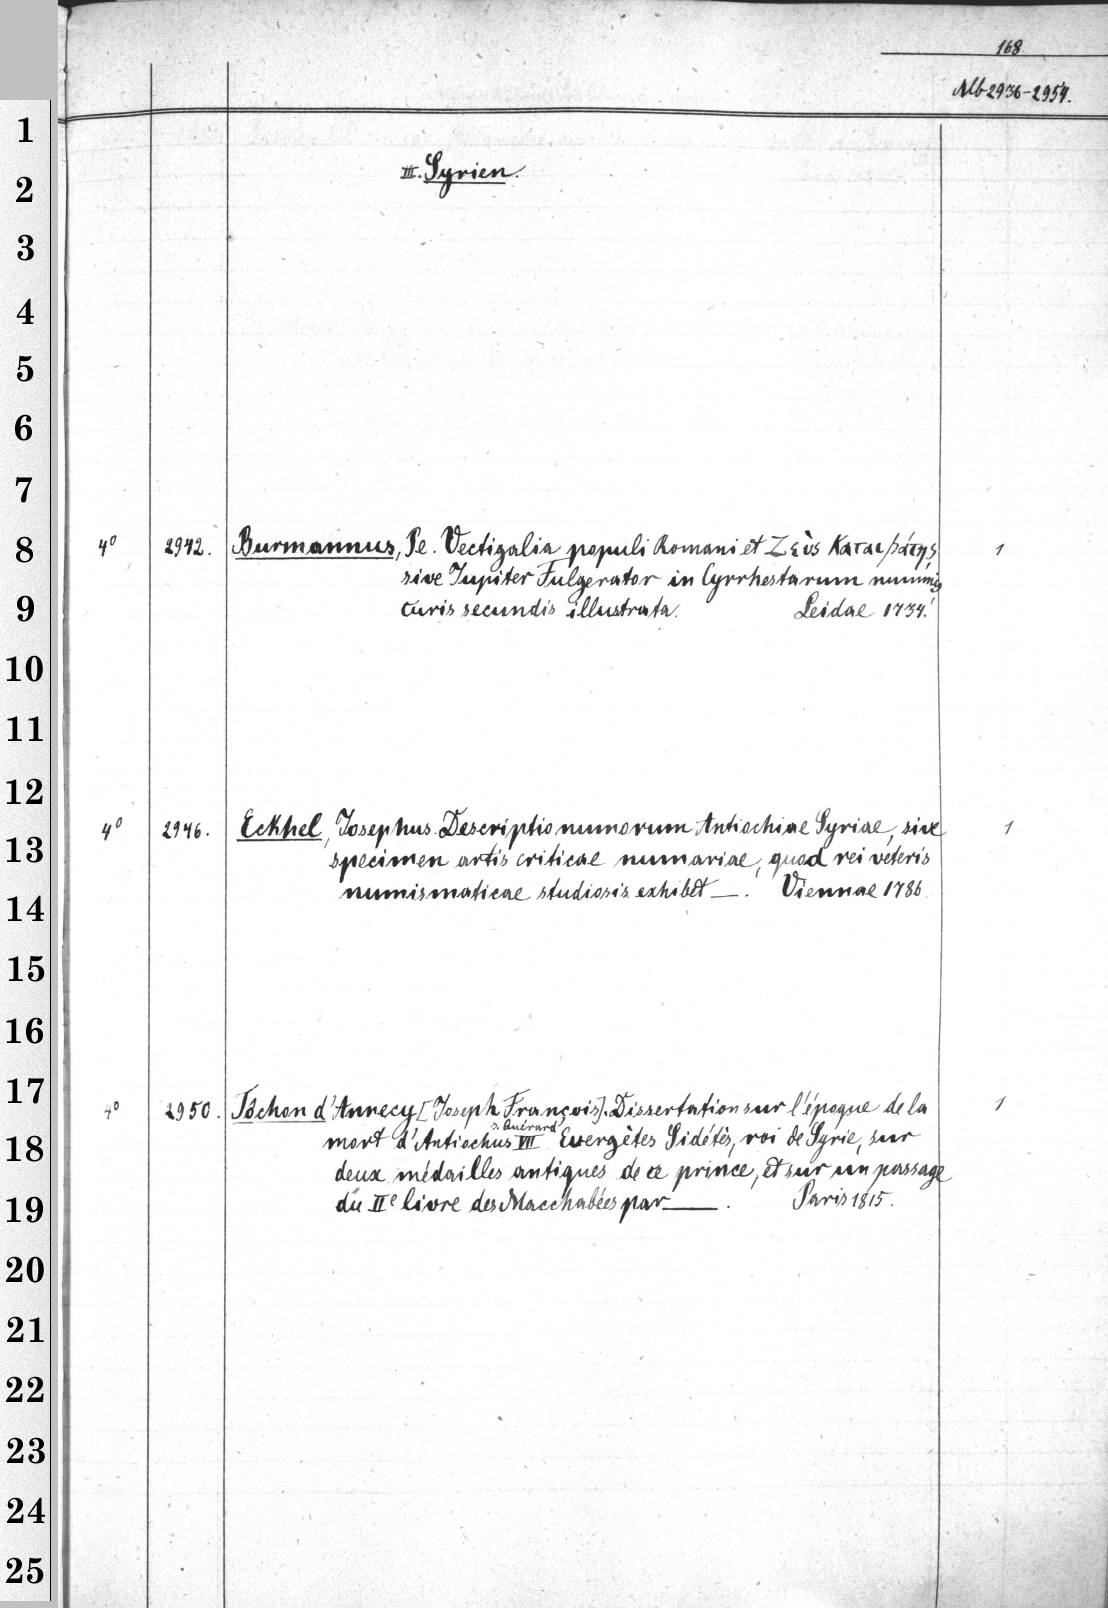 168.
Nb 2936-2954.
III. Syrien.
4° 2942. Burmannus, Pe. Vectigalia populi Romani et Ζεὺς Καταιβάτης, 1
sive Jupiter Fulgerator in Cyrrhestarum nummis
curis secundis illustrata. Leidae 1734.
4° 2946. Eckhel, Josephus. Descriptio numorum Antiochiae Syriae, sive 1
specimen artis criticae numariae, quod rei veteris
numismaticae studiosis exhibet —. Viennae 1786.
4° 2950. Tôchon d'Annecy [Joseph François]. Dissertation sur l'époque de la 1
s. Quérard
mort d'Antiochus VII Evergètes Sidétès, roi de Syrie, sur
deux médailles antiques de ce prince, et sur un passage
du IIe livre des Macchabées par —. Paris 1815.
1
2
3
4
5
6
7
8
9
10
11
12
13
14
15
16
17
18
19
20
21
22
23
24
25